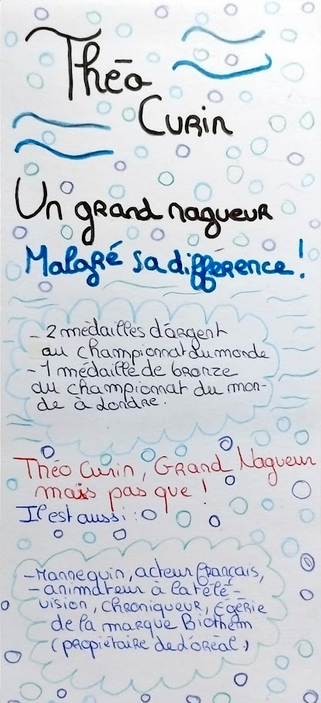 Théo
Curin
Un grand nageur
Malgré sa différence !
- 2 médailles d'argent
au championnat du monde
- 1 médaille de bronze
au championnat du mon-
de à Londre.
Théo Curin, Grand Nageur
mais pas que !
Il est aussi :
- Mannequin, acteur français,
- animateur à la télé-
vision, chroniqueur, égérie
de la marque Biotherm
(propriétaire de l'oréal.)